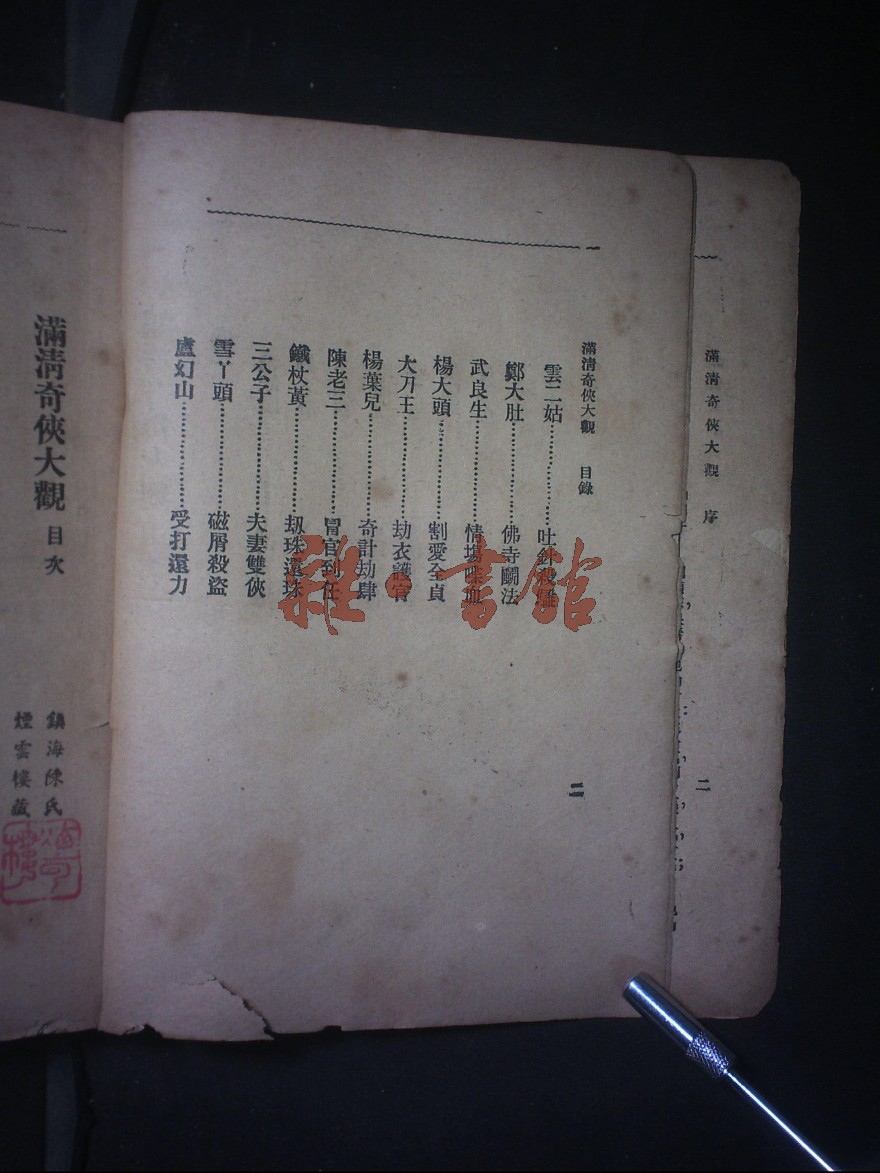 滿清奇俠大觀 序
二
滿清奇俠大觀 目錄
雲二姑⋯⋯⋯⋯吐針殺
鄭大肚⋯⋯⋯⋯佛寺鬭法
武良生⋯⋯⋯⋯情場喋血
楊大頭⋯⋯⋯⋯割愛全貞
大刀王⋯⋯⋯⋯劫衣護官
楊葉兒⋯⋯⋯⋯奇計劫肆
陳老三⋯⋯⋯⋯冒官到任
鐵杖黃⋯⋯⋯⋯刼珠還珠
三公子⋯⋯⋯⋯夫妻雙俠
雪丫頭⋯⋯⋯⋯磁屑殺盜
盧幻山⋯⋯⋯⋯受打還力
二
滿清奇俠大觀 目次
鎮海陳氏
煙雲樓藏
雜·書館